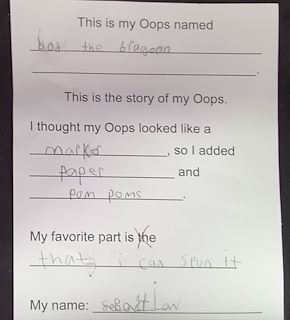 This is my Oops named
bob the bragoon
This is the story of my Oops.
I thought my Oops looked like a
marker, so I added
paper and
pom poms.
My favorite part is the
that i can spun it
My name: sebastian